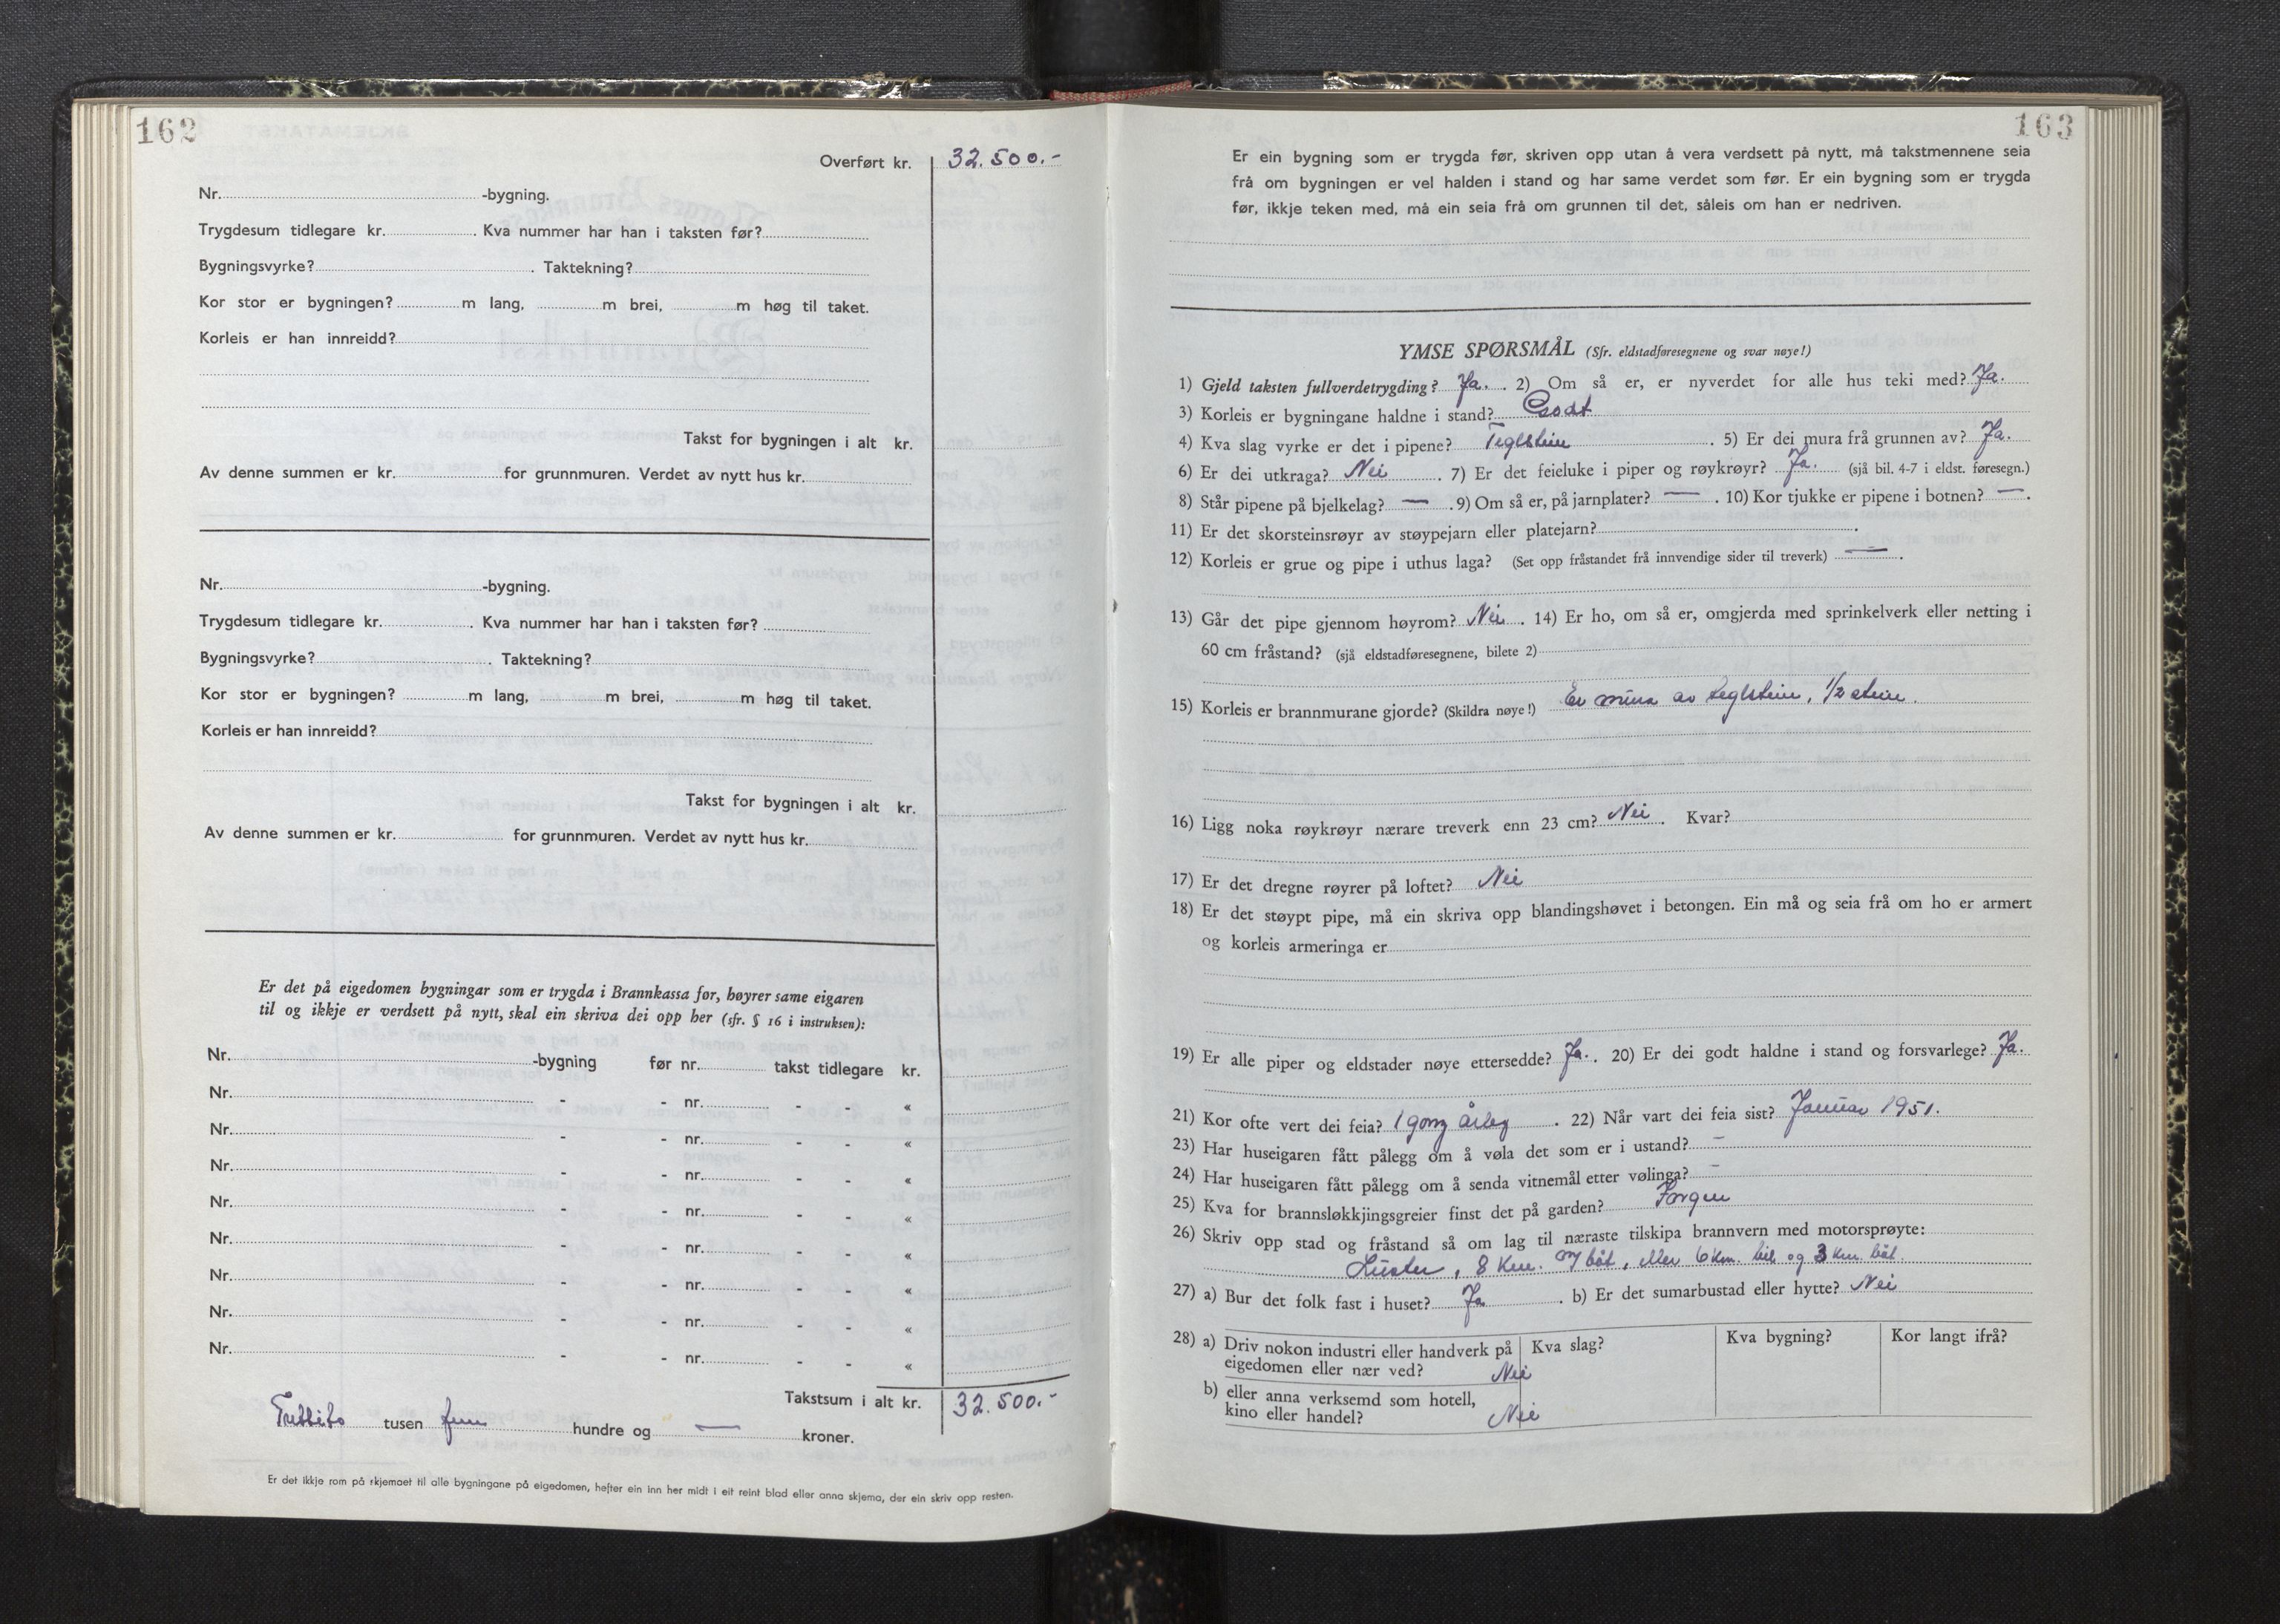 162
Overført kr. 32.500.-
Nr. -bygning.
Trygdesum tidlegare kr. . Kva nummer har han i taksten før?
Bygningsvyrke? . Taktekning?
Kor stor er bygningen? m lang, m brei, m høg til taket.
Korleis er han innreidd?
Takst for bygningen i alt kr.
Av denne summen er kr. for grunnmuren. Verdet av nytt hus kr.
Nr. -bygning.
Trygdesum tidlegare kr. . Kva nummer har han i taksten før?
Bygningsvyrke? . Taktekning?
Kor stor er bygningen? m lang, m brei, m høg til taket.
Korleis er han innreidd?
Takst for bygningen i alt kr.
Av denne summen er kr. for grunnmuren. Verdet av nytt hus kr.
Er det på eigedomen bygningar som er trygda i Brannkassa før, høyrer same eigaren
til og ikkje er verdsett på nytt, skal ein skriva dei opp her (sfr. § 16 i instruksen):
Nr. -bygning før nr. takst tidlegare kr.
Nr. - - nr. - - «
Nr. - - nr. - - «
Nr. - - nr. - - «
Nr. - - nr. - - «
Nr. - - nr. - - «
Nr. - - nr. - - «
Nr. - - nr. - - «
Nr. - - nr. - - «
Takstsum i alt kr. 32.500.-
Trettito tusen fem hundre og — kroner.
Er det ikkje rom på skjemaet til alle bygningane på eigedomen, hefter ein inn her midt i eit reint blad eller anna skjema, der ein skriv opp resten.
163
Er ein bygning som er trygda før, skriven opp utan å vera verdsett på nytt, må takstmennene seia
frå om bygningen er vel halden i stand og har same verdet som før. Er ein bygning som er trygda
før, ikkje teken med, må ein seia frå om grunnen til det, såleis om han er nedriven.
YMSE SPØRSMÅL (Sfr. eldstadføresegnene og svar nøye!)
1) Gjeld taksten fullverdetrygding? Ja. . 2) Om så er, er nyverdet for alle hus teki med? Ja.
3) Korleis er bygningane haldne i stand? Godt
4) Kva slag vyrke er det i pipene? Teglstein . 5) Er dei mura frå grunnen av? Ja.
6) Er dei utkraga? Nei . 7) Er det feieluke i piper og røykrøyr? Ja. (sjå bil. 4-7 i eldst. føresegn.)
8) Står pipene på bjelkelag? — . 9) Om så er, på jarnplater? — . 10) Kor tjukke er pipene i botnen? — .
11) Er det skorsteinsrøyr av støypejarn eller platejarn? .
12) Korleis er grue og pipe i uthus laga? (Set opp fråstandet frå innvendige sider til treverk) — .
13) Går det pipe gjennom høyrom? Nei . 14) Er ho, om så er, omgjerda med sprinkelverk eller netting i
60 cm fråstand? (sjå eldstadføresegnene, bilete 2)
15) Korleis er brannmurane gjorde? (Skildra nøye!) Er mura av teglstein, 1/2 stein.
16) Ligg noka røykrøyr nærare treverk enn 23 cm? Nei . Kvar?
17) Er det dregne røyrer på loftet? Nei
18) Er det støypt pipe, må ein skriva opp blandingshøvet i betongen. Ein må og seia frå om ho er armert
og korleis armeringa er
19) Er alle piper og eldstader nøye ettersedde? Ja. . 20) Er dei godt haldne i stand og forsvarlege? Ja.
21) Kor ofte vert dei feia? 1 gong årleg . 22) Når vart dei feia sist? Januar 1951.
23) Har huseigaren fått pålegg om å vøla det som er i ustand? -
24) Har huseigaren fått pålegg om å senda vitnemål etter vølinga? -
25) Kva for brannsløkkjingsgreier finst det på garden?
26) Skriv opp stad og fråstand så om lag til næraste tilskipa brannvern med motorsprøyte:
Luster, 8 km. m/ båt, eller 6 km. bil og 3 km. båt.
27) a) Bur det folk fast i huset? Ja . b) Er det sumarbustad eller hytte? Nei
28) a) Driv nokon industri eller handverk på Kva slag? Kva bygning? Kor langt ifrå?
eigedomen eller nær ved? Nei
b) eller anna verksemd som hotell,
kino eller handel? Nei